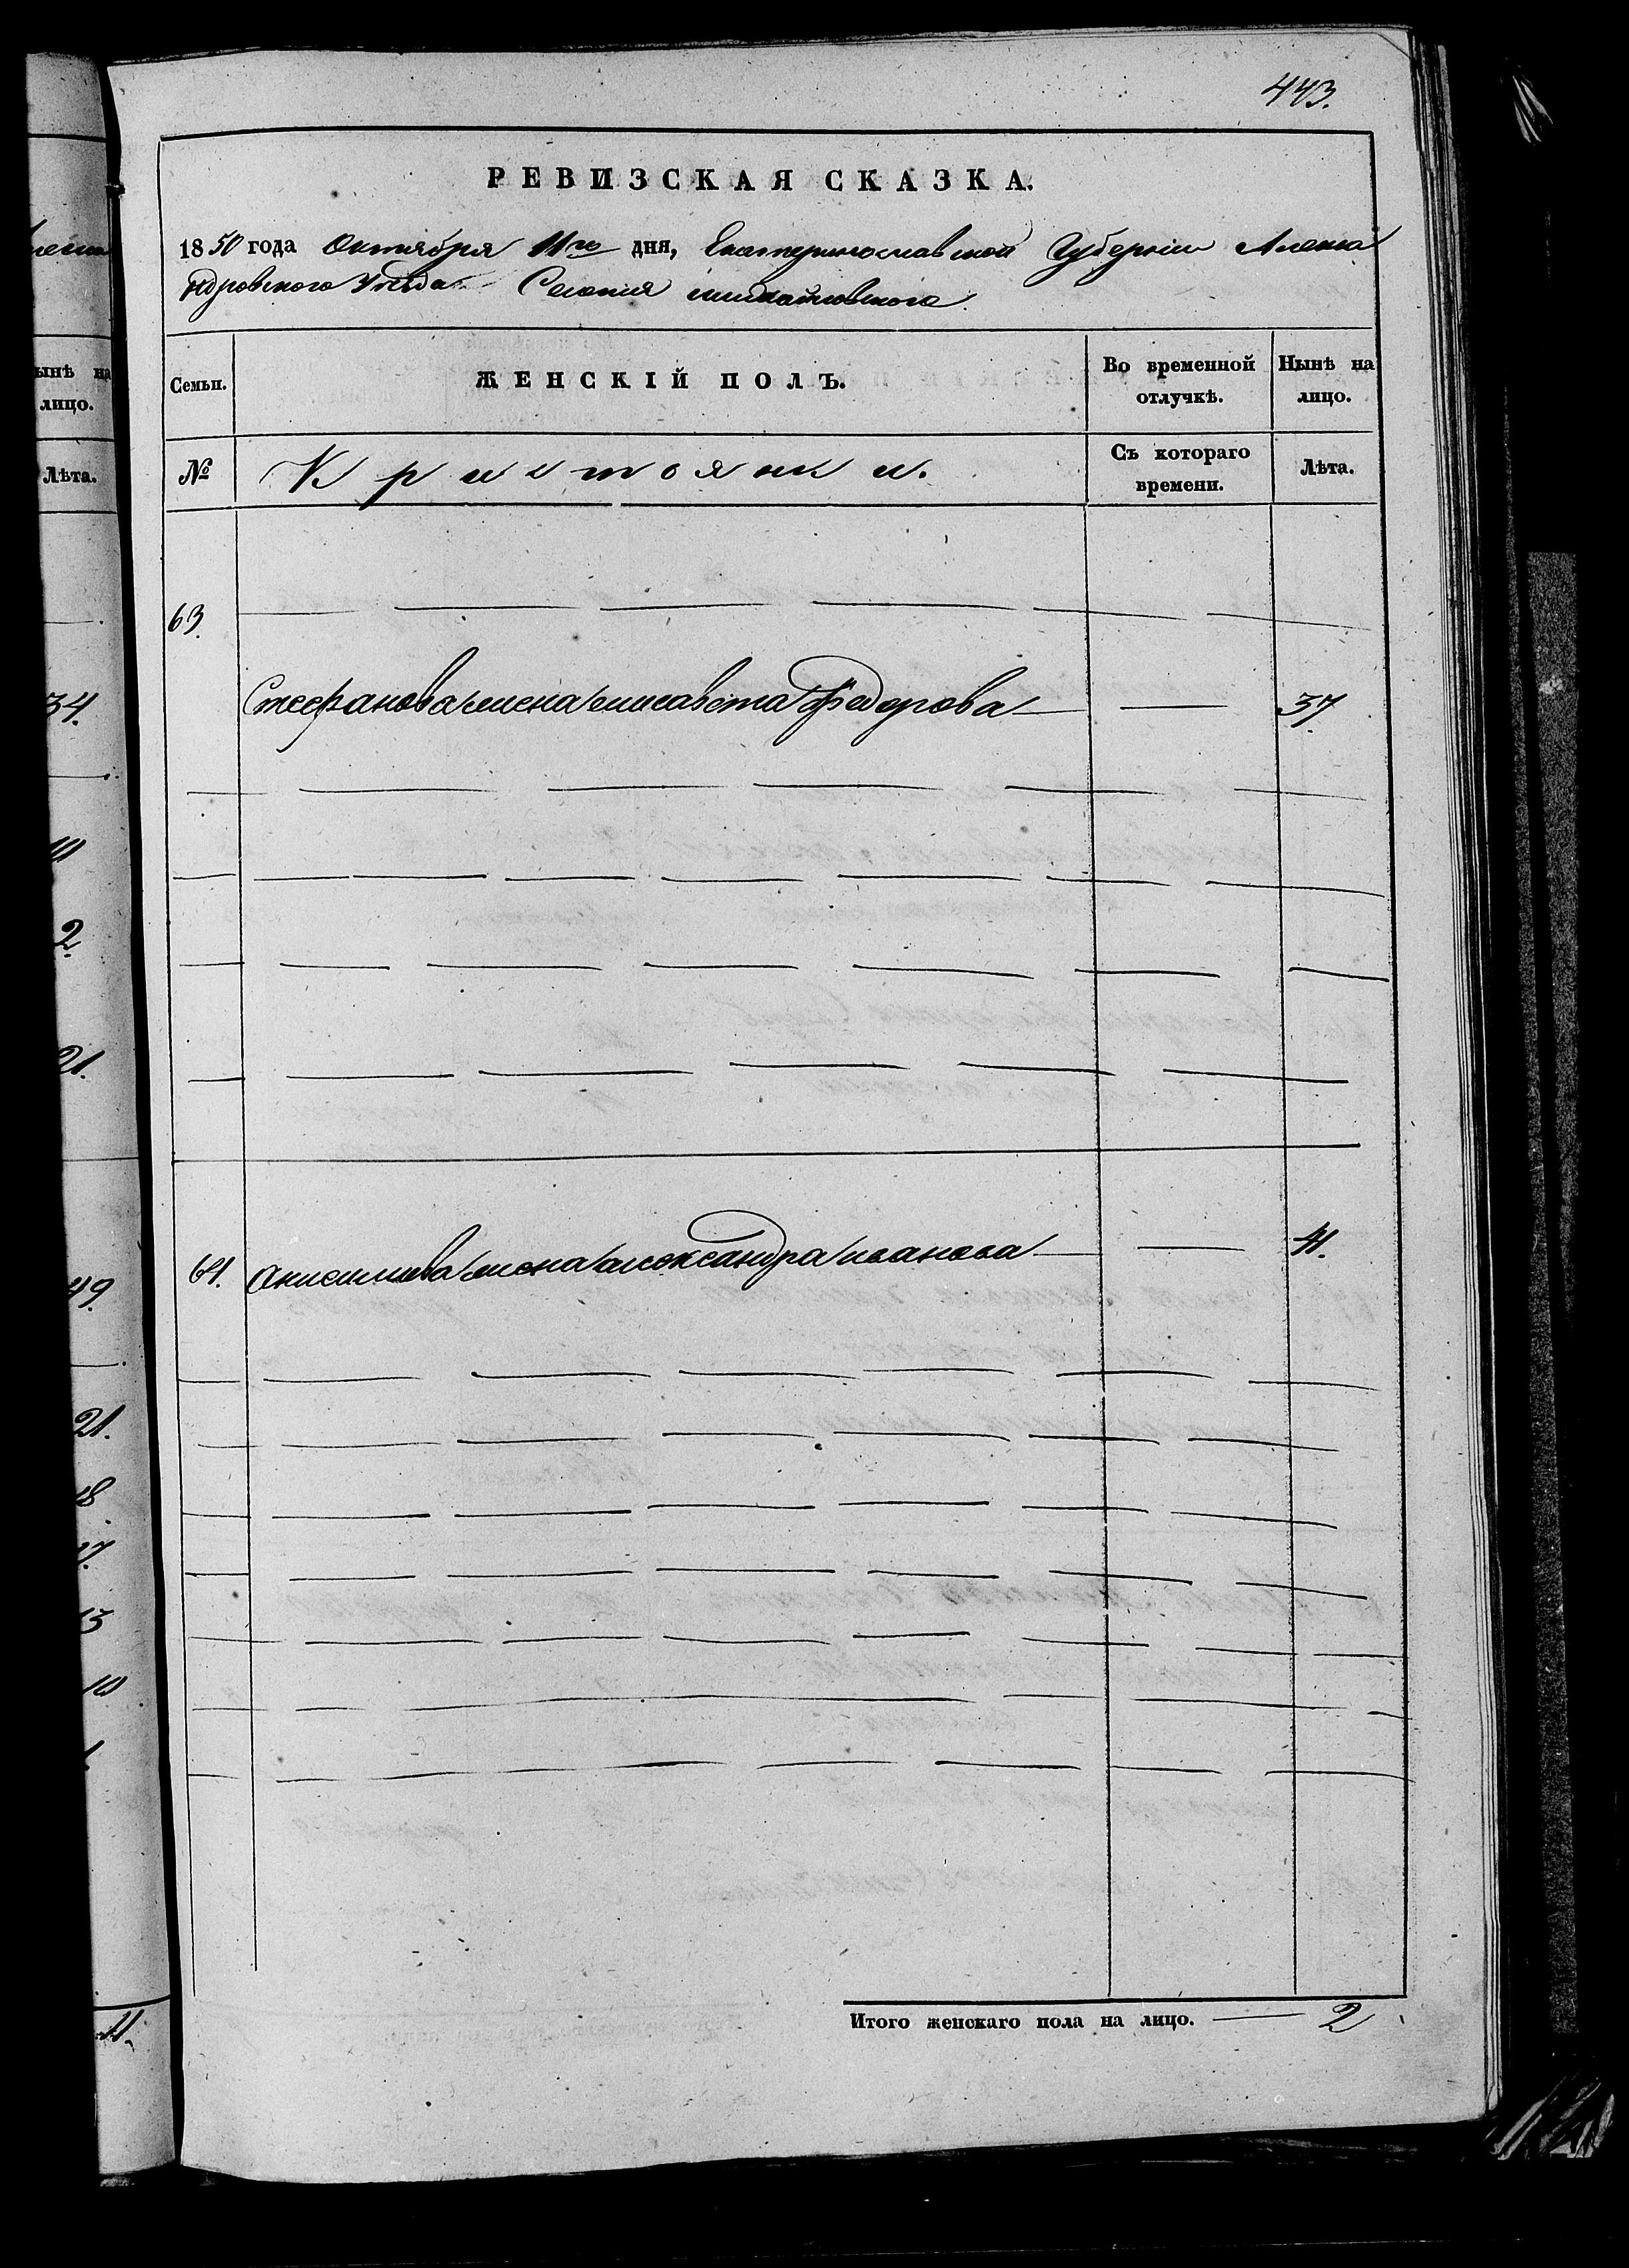 443.
РЕВИЗСКАЯ СКАЗКА.
1850 года Октября 11го дня, Екатеринославской Губерніи Алекса
ндровского Уѣзда Селения
Семьи.
ЖЕНСКІЙ ПОЛЪ.
Во временной отлучкѣ.
Нынѣ на лицо.
№
Съ котораго времени.
Лѣта.
63.
Стефанова жена елисавета Федорова — — 37.
64. Анисимова жена александра иванова — — 41.
Итого женскаго пола на лицо. — 2
ынѣ на
лицо.
Лѣта.
34.
2.
21.
49.
21.
18
17.
13
10